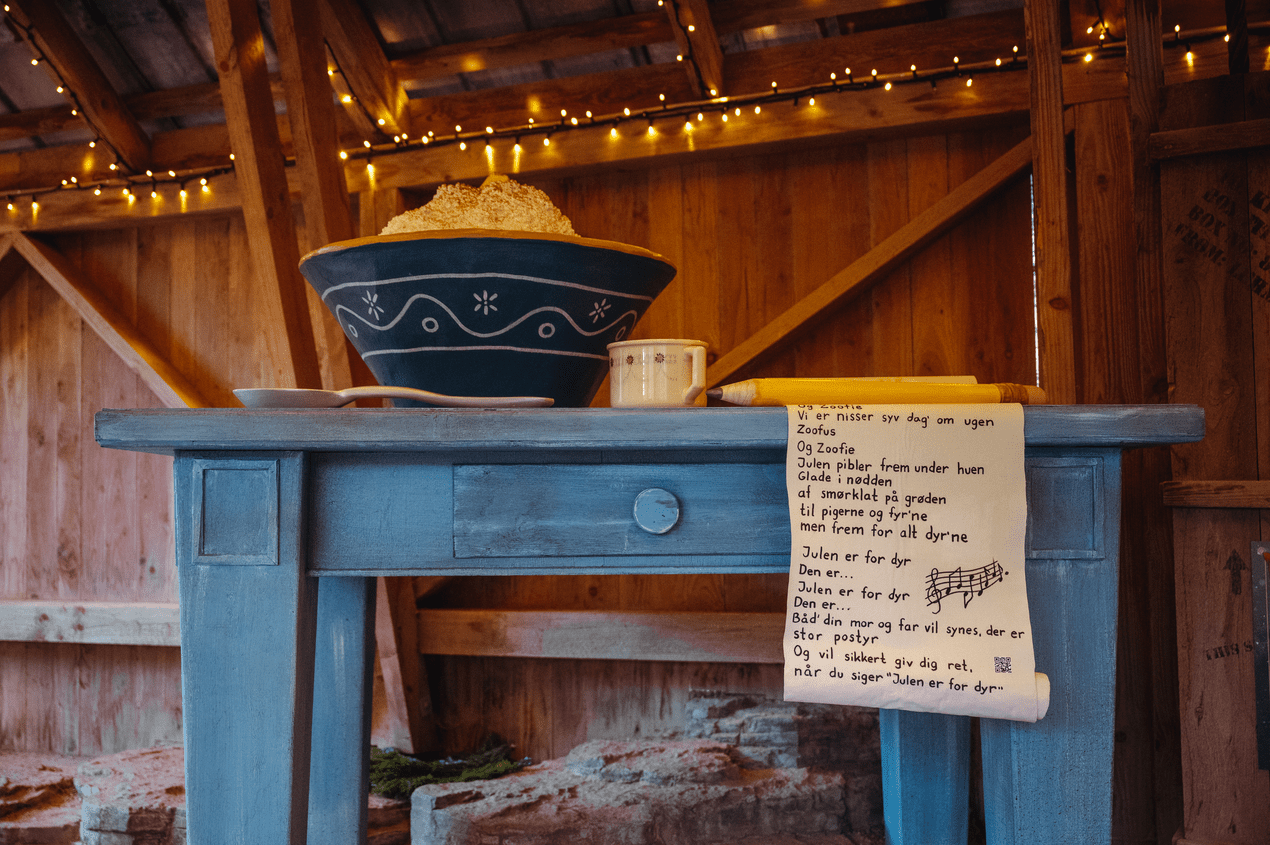 Og Zoofie
Vi er nisser syv dag' om ugen
Zoofus
Og Zoofie
Julen pibler frem under huen
Glade i nødden
af smørklat på grøden
til pigerne og fyr'ne
men frem for alt dyr'ne
Julen er for dyr
Den er...
Julen er for dyr
Den er...
Båd' din mor og far vil synes, der er
stor postyr
Og vil sikkert giv dig ret,
når du siger "Julen er for dyr"
BOX